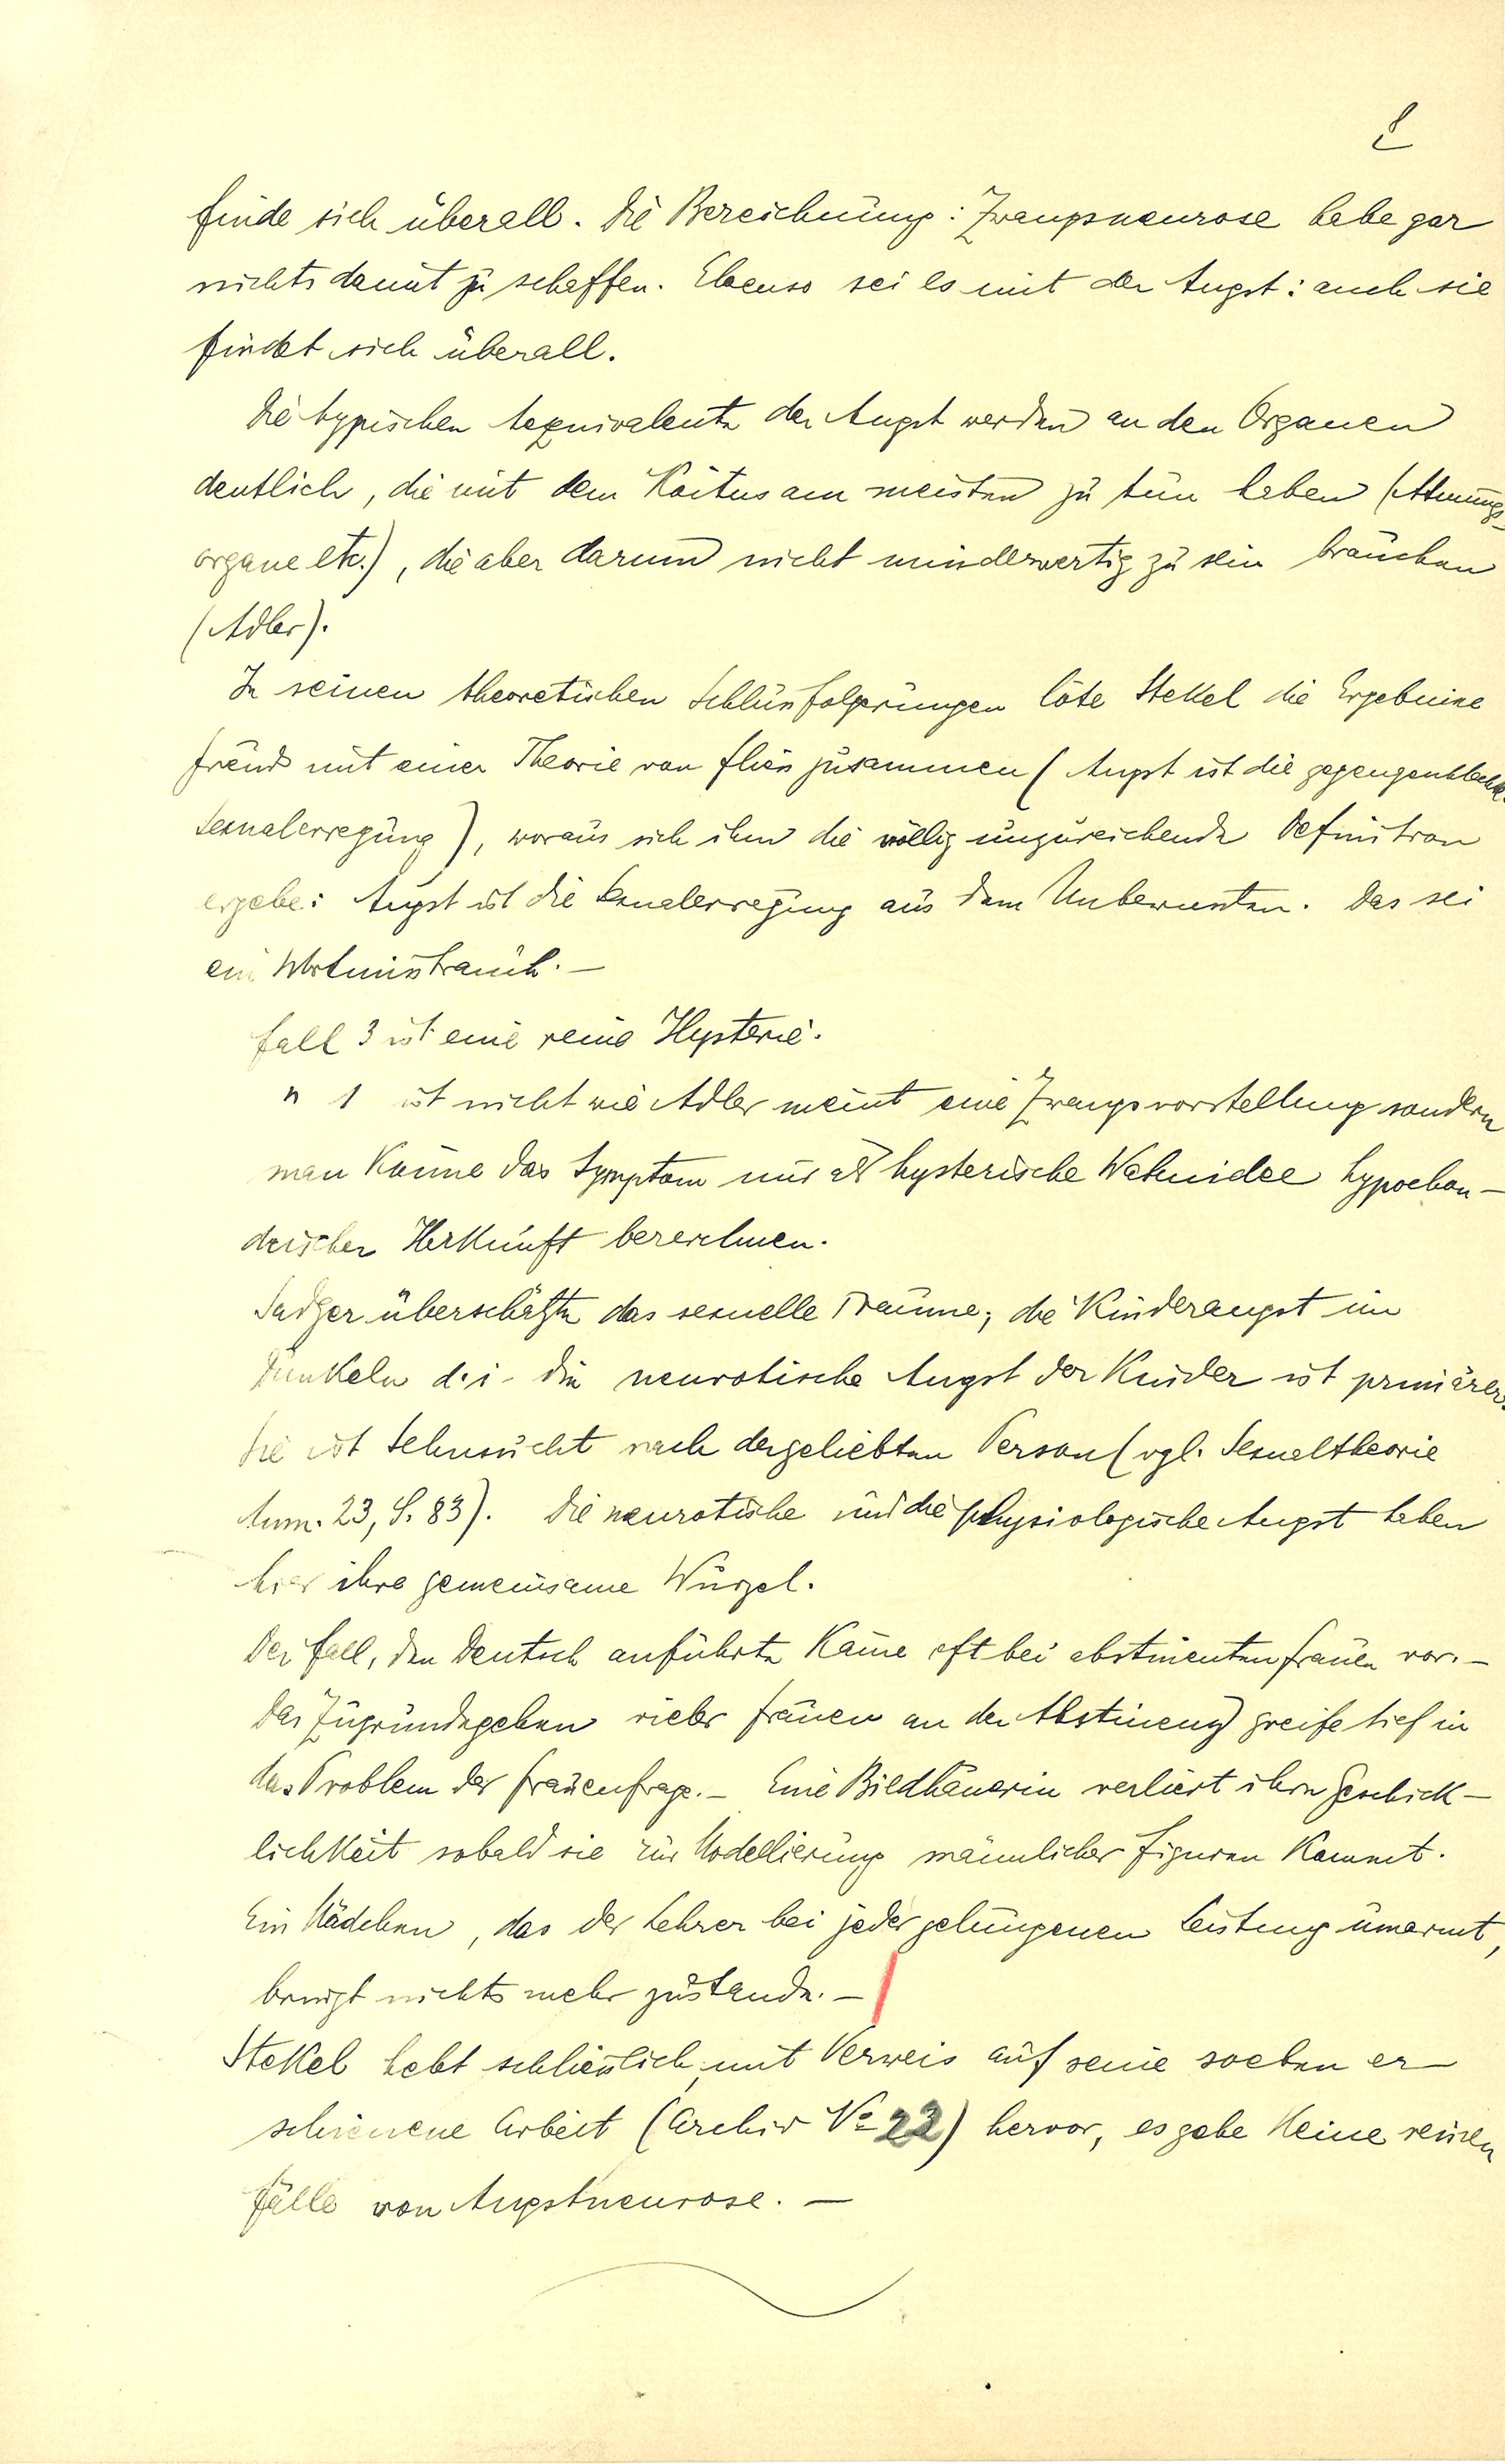 8
finde sich überall. Die Bezeichnung: Zwangsneurose habe gar
nichts damit zu schaffen. Ebenso sei es mit der Angst: auch sie
findet sich überall.
Die typischen Aequivalente der Angst werden an den Organen
deutlich, die mit dem Koitus am meisten zu tun haben (Atmungs-
organe etc.), die aber darum nicht minderwertig zu sein brauchen
(Adler).
In seinen theoretischen Schlußfolgerungen löte Stekel die Ergebnisse
Freuds mit einer Theorie von Fließ zusammen (Angst ist die
Sexualerregung), woraus sich ihm die völlig unzureichende Definition
ergebe: Angst ist die Sexualerregung aus dem Unbewußten. Das sei
ein Wortmißbrauch. —
Fall 3 ist eine reine Hysterie.
" 1 ist nicht wie Adler meint eine Zwangsvorstellung sondern
man könne das Symptom nur als hysterische Wahnidee hypochon-
drischer Herkunft bezeichnen.
Sadger überschätzte das sexuelle Trauma; die Kinderangst im
Dunkeln d.i. die neurotische Angst der Kinder ist primärer.
Sie ist Sehnsucht nach der geliebten Person (vgl. Sexualtheorie
Anm. 23, S. 83). Die neurotische und die physiologische Angst haben
hier ihre gemeinsame Wurzel.
Der Fall, den Deutsch anführte käme oft bei abstinenten Frauen vor. —
Das Zugrundegehen vieler Frauen an der Abstinenz greife tief in
das Problem der Frauenfrage. — Eine Bildhauerin verliert ihre Geschick-
lichkeit sobald sie zur Modellierung männlicher Figuren kommt.
Ein Mädchen, das der Lehrer bei jeder gelungenen Leistung umarmt,
bringt nichts mehr zustande. —
Stekel hebt schließlich, mit Verweis auf seine soeben er-
schienene Arbeit (Archiv No 22) hervor, es gebe keine reinen
Fälle von Angstneurose. —